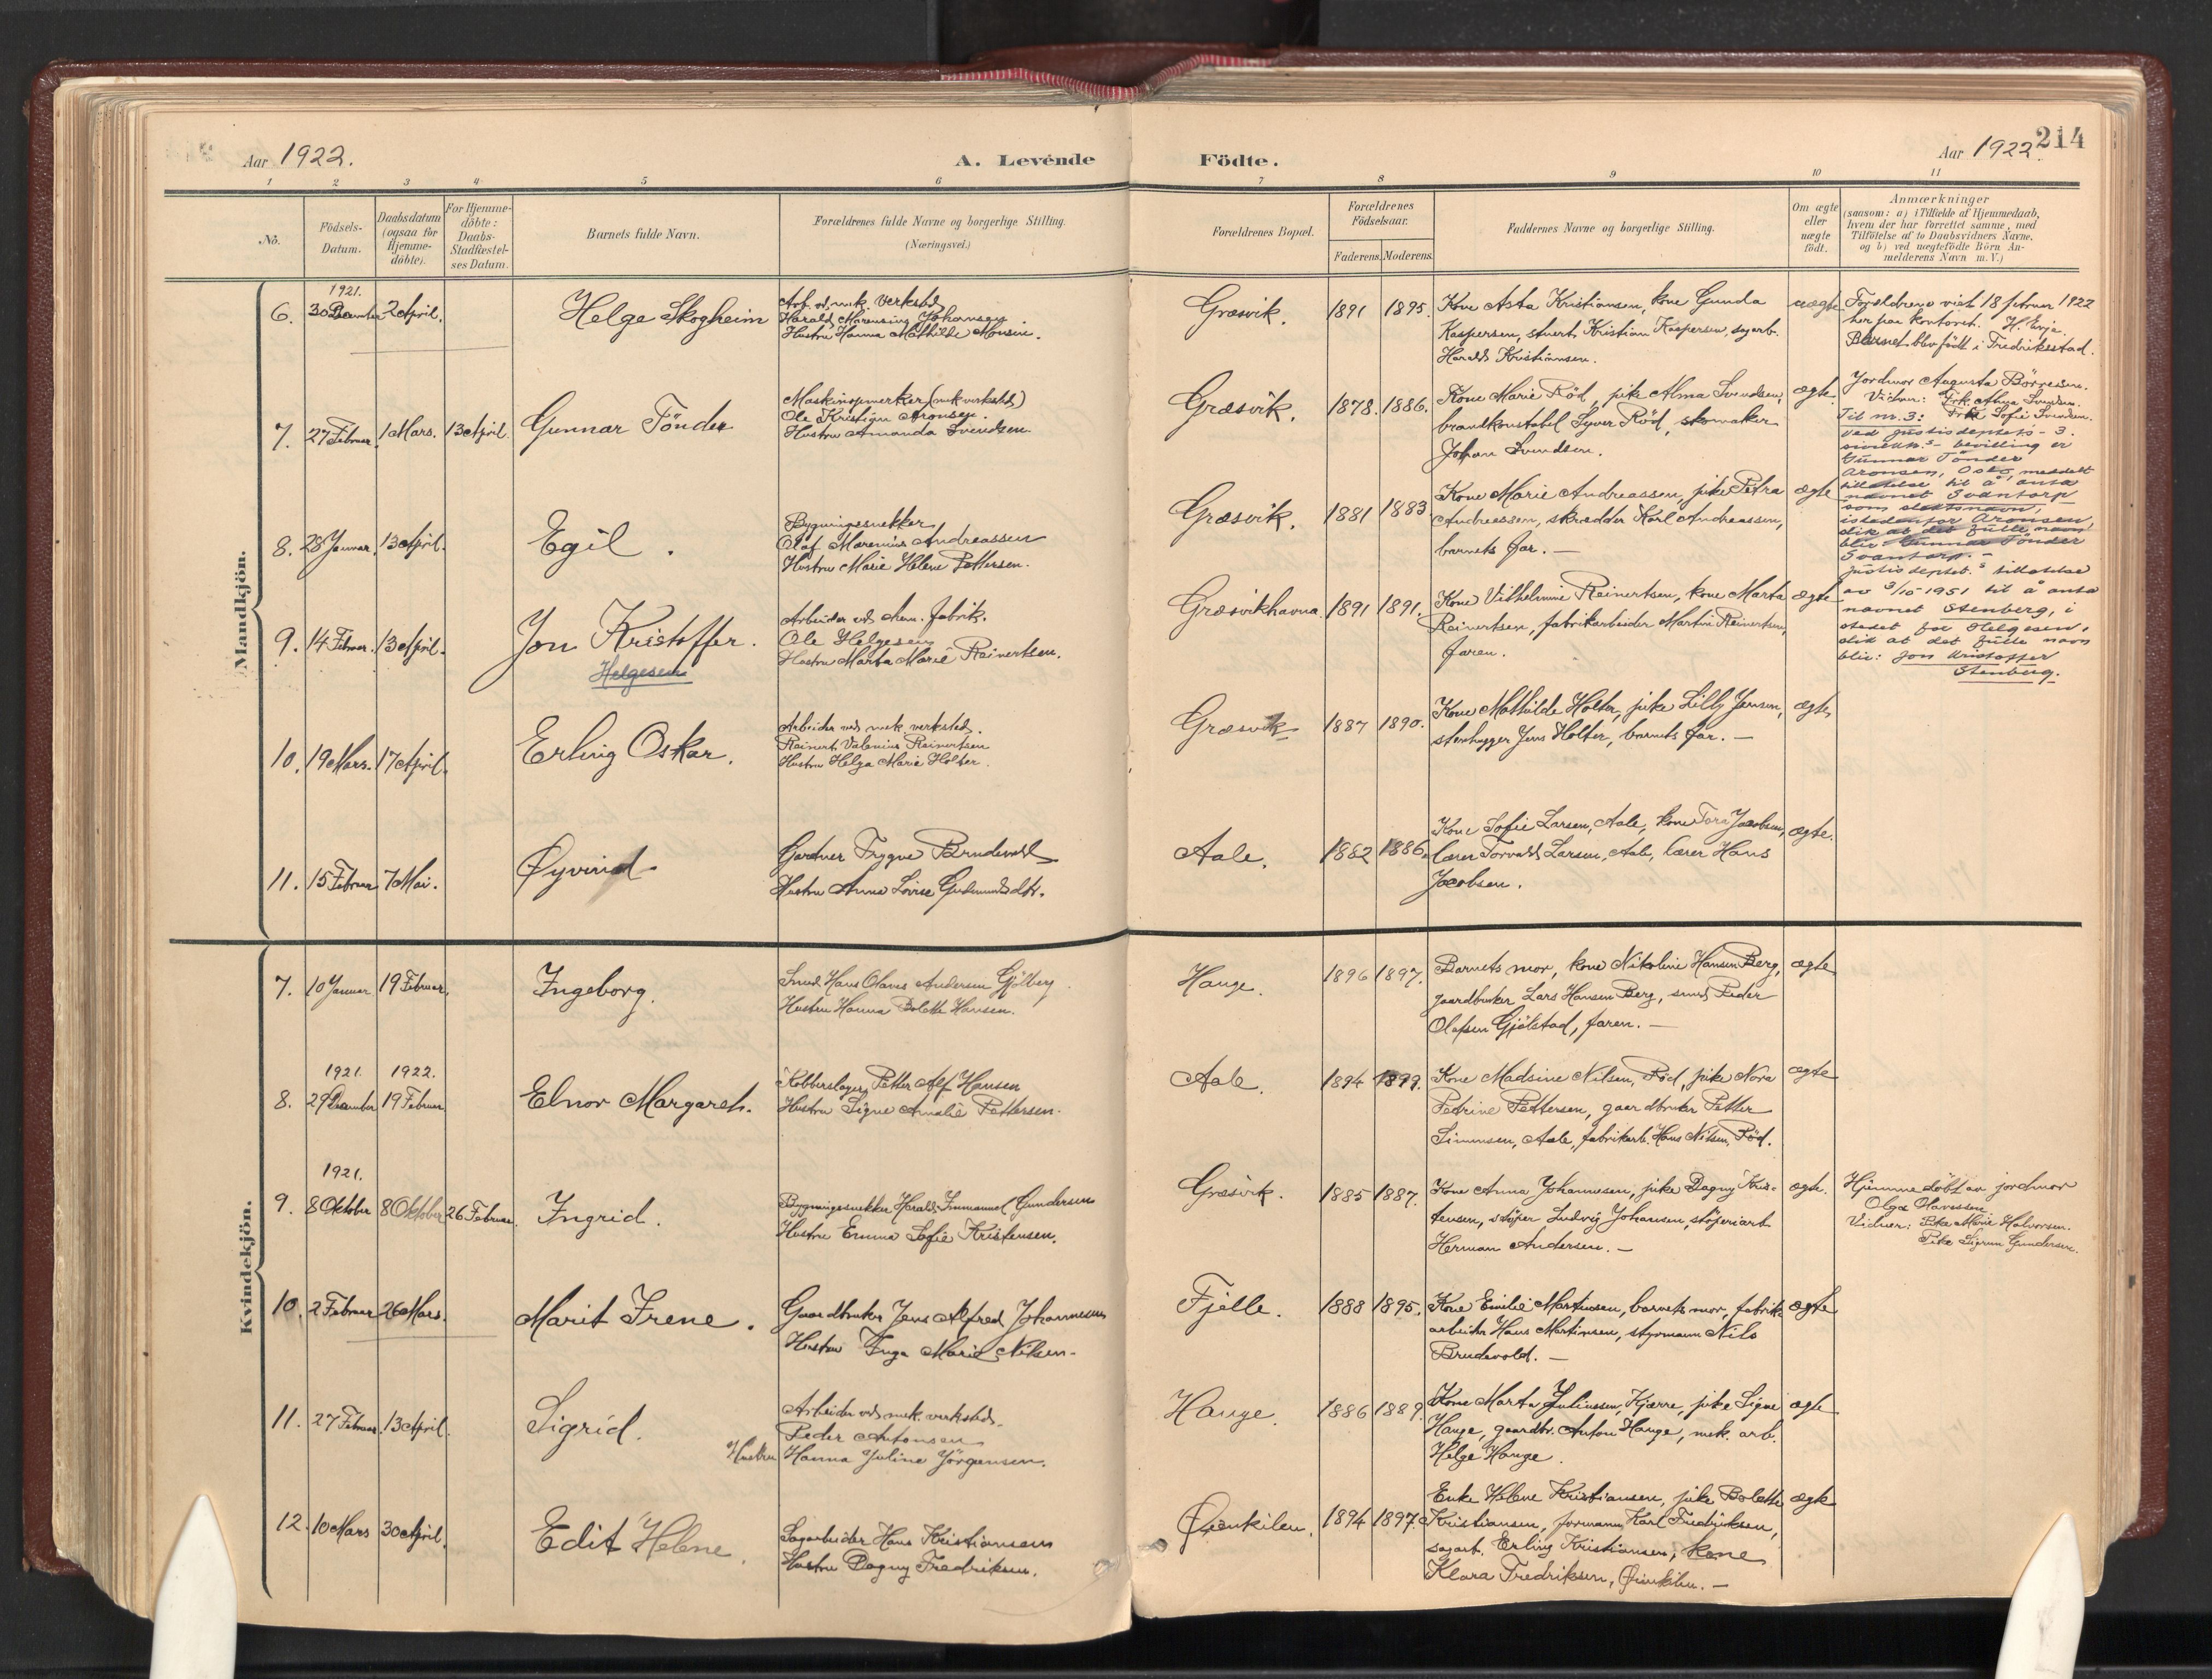 Aar 1922.
A. Levende
Födte.
Aar 1922.
214
1 2 3 4 5 6 7 8 9 10 11
No.
Födsels-
Datum.
Daabsdatum
(ogsaa for
Hjemme-
döbte).
For Hjemme-
döbte:
Daabs-
Stadfestel-
ses Datum.
Barnets fulde Navn.
Forældrenes fulde Navne og borgerlige Stilling.
(Næringsvei.)
Forældrenes Bopæl.
Forældrenes
Födselsaar.
Faderens. Moderens.
Faddernes Navne og borgerlige Stilling.
Om ægte
eller
uægte
födt.
Anmærkninger
(saasom: a) i Tilfælde af Hjemmedaab,
hvem der har forrettet samme, med
Tilföielse af to Daabsvidners Navne,
og b) ved uægtefödte Börn An-
melderens Navn m.V.)
Mandkjön.
1921.
6. 30 December 2 April. Helge Skogheim
Arb. ved mek. verksted
Harald Marensius Johansen
Hustru Hanna Mathilde Monsen.
Græsvik. 1891 1895.
Kone Asta Kristiansen, kone Gunda
Kaspersen, stuert Kristian Kaspersen, sagarb.
Harald Kristiansen.
uægte
Forældrene viet 18 februar 1922
her paa kontoret. H. Evje.
Barnet blev födt i Fredrikstad.
7. 27 Februar 1 Mars. 13 April. Gunnar Tönder
Maskinopmerker (mek. verksted)
Ole Kristian Aronsen.
Hustru Amanda Svendsen.
Græsvik. 1878. 1886.
Kone Marie Röd, pike Alma Svendsen,
brandkonstabel Syver Röd, skomaker
Johan Svendsen.
ægte.
Jordmor Augusta Börresen.
Vidner: Frk. Alma Svendsen.
Frk. Sofie Svendsen.
Til nr. 3:
ved justisdeptets - 3.
bevilling er
Gunnar Tönder
Aronsen, Oslo, meddelt
tillatelse til å anta
navnet Svantorp
som slektsnavn,
istedenfor Aronsen,
slik at det fulle navn
blir Gunnar Tönder
Svantorp. -
8. 28 Januar. 13 April. Egil.
Bygningssnekker
Olaf Marenius Andreassen
Hustru Marie Helene Pettersen.
Græsvik. 1881 1883
Kone Marie Andreassen, pike Petra
Andreassen, skrædder Karl Andreassen,
barnets far. —
ægte
9. 14 Februar. 13 April. Jon Kristoffer.
Helgesen
Arbeider ved chem. fabrik.
Ole Helgesen
Hustru Marta Marie Reinertsen.
Græsvikhavna 1891 1891.
Kone Vilhelmine Reinertsen, kone Marta
Reinertsen, fabrikarbeider Martin Reinertsen,
faren.
ægte
justisdeptet.s tillatelse
av 3/10-1951 til å anta
navnet Stenberg, i
stedet for Helgesen,
slik at det fulle navn
blir: Jon Kristoffer
Stenberg.
10. 19 Mars. 17 April. Erling Oskar.
Arbeider ved mek. verksted.
Reinert Valenius Reinertsen
Hustru Helga Marie Holter.
Græsvik 1887 1890.
Kone Mathilde Holter, pike Lilly Jensen,
stenhugger Jens Holter, barnets far. —
ægte
11. 15 Februar 7 Mai. Øyvind.
Gartner Trygve Brudevold
Hustru Anna Lovise Gudmundsdtr.
Aale. 1882 1886.
Kone Sofie Larsen, Aale, kone Tora Jacobsen,
lærer Torvald Larsen, Aale, lærer Hans
Jacobsen.
ægte.
Kvindekjön.
7. 10 Januar 19 Februar. Ingeborg.
Smed Hans Olaves Andersen Gjölberg.
Hustru Hanna Bolette Hansen.
Hauge. 1896 1897.
Barnets mor, kone Nikoline Hansen Berg,
gaardbruker Lars Hansen Berg, smed Peder
Olafsen Gjölstad, faren. —
ægte
1921. 1922.
8. 29 December 19 Februar Elnor Margareth.
Kobberslager Petter Alf Hansen
Hustru Signe Amalie Pettersen.
Aale. 1894 1899.
Kone Madsine Nilsen, Röd, pike Nora
Petrine Pettersen, gaardbruker Petter
Simonsen, Aale, fabrikarb. Hans Nilsen, Röd.
ægte
1921.
9. 8 Oktober 8 Oktober 26 Februar. Ingrid.
Bygningssnekker Harald Immanuel Gundersen
Hustru Emma Sofie Kristensen.
Græsvik. 1885 1887.
Kone Anna Johannesen, pike Dagny Kris-
tensen, stöper Ludvig Johansen, stöperiarb.
Herman Andersen. —
ægte.
Hjemmedöbt av jordmor
Olga Olavesen
Vidner: Pike Marie Halvorsen.
Pike Sigrun Gundersen.
10. 2 Februar 26 Mars. Marit Irene.
Gaardbruker Jens Alfred Johannesen
Hustru Inga Marie Nilsen.
Fjelle. 1888 1895.
Kone Emilie Martinsen, barnets mor, fabrik-
arbeider Hans Martinsen, styrmann Nils
Brudevold. —
ægte
11. 27 Februar 13 April. Sigrid.
Arbeider ved mek. verksted.
Peder Antonsen
Hustru Hanna Juline Jörgensen.
Hauge. 1886 1889
Kone Marta Juliussen, Kjærre, pike Signe
Hauge, gaardbr. Anton Hauge, mek. arb.
Helge Hauge.
ægte
12. 10 Mars 30 April. Edit Helene.
Sagarbeider Hans Kristiansen
Hustru Dagny Fredriksen.
Øienkilen. 1894 1897.
Enke Helene Kristiansen, pike Bolette
Kristiansen, formann Karl Fredriksen,
sagarb. Erling Kristiansen, kone
Klara Fredriksen, Øienkilen. —
ægte